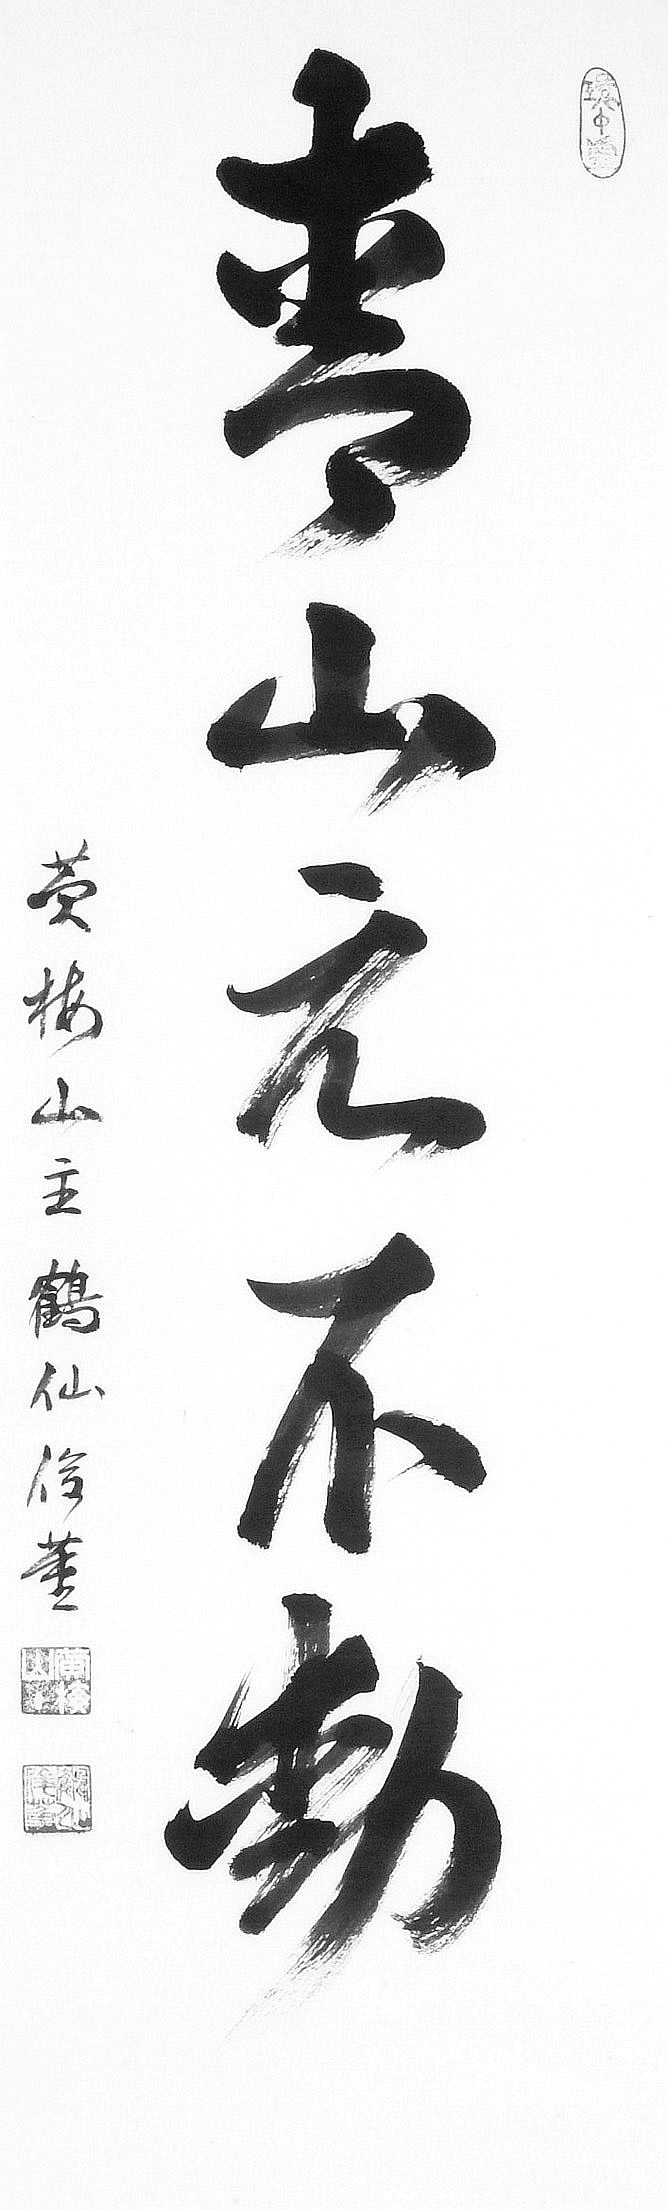 青山元不動
黄梅山主鶴仙俊董